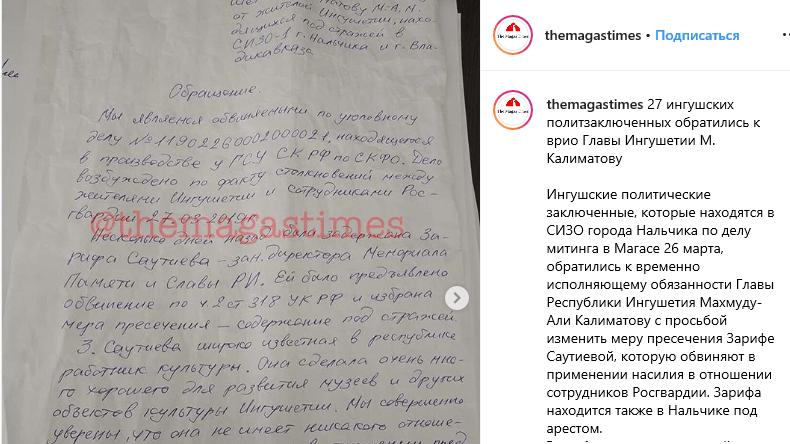 атову М-А.М.
от жителей Ингушетии, нахо-
дящихся под стражей в
СИЗО-1 г. Нальчика и г. Вла-
дикавказа
Обращение.
Мы являемся обвиняемыми по уголовному
делу №11902260002000021, находящегося
в производстве у ГСУ СК РФ по СКФО. Дело
возбуждено по факту столкновений между
жителями Ингушетии и сотрудниками Рос-
гвардии 27.03.2019г.
@themagastimes
Несколько дней назад была задержана За-
рифа Саутиева – зам. директора Мемориала
Памяти и Славы РИ. Ей было предъявлено
обвинение по ч.2 ст 318 УК РФ и избрана
мера пресечения – содержание под стражей.
З. Саутиева широко известная в республике
работник культуры. Она сделала очень мно-
го хорошего для развития музеев и других
объектов культуры Ингушетии. Мы совершенно
уверены, что она не имеет никакого отноше-
themagastimes • Подписаться
themagastimes 27 ингушских
политзаключенных обратились к
врио Главы Ингушетии М.
Калиматову
Ингушские политические
заключенные, которые находятся в
СИЗО города Нальчика по делу
митинга в Магасе 26 марта,
обратились к временно
исполняющему обязанности Главы
Республики Ингушетия Махмуду-
Али Калиматову с просьбой
изменить меру пресечения Зарифе
Саутиевой, которую обвиняют в
применении насилия в отношении
сотрудников Росгвардии. Зарифа
находится также в Нальчике под
арестом.